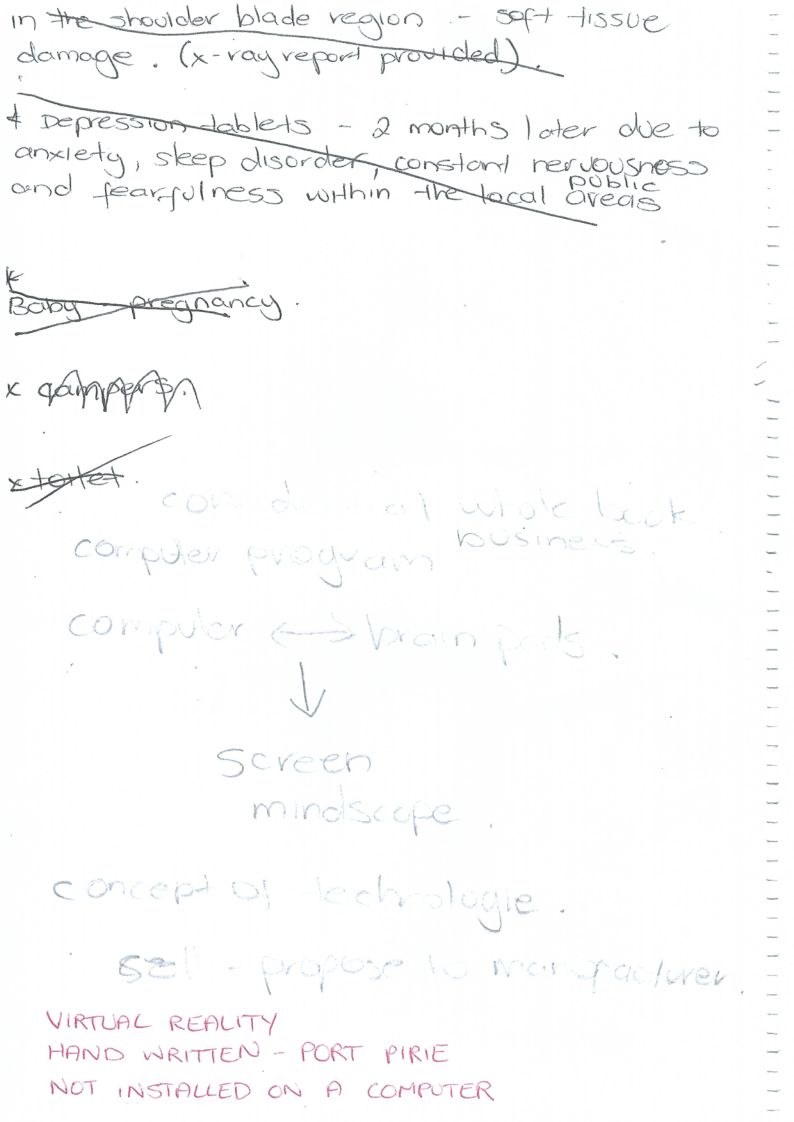 in the shoulder blade region - soft tissue
damage. (x-ray report provided).
* Depression tablets - 2 months later due to
anxiety, sleep disorder, constant nervousness
and fearfulness within the local public areas
Baby pregnancy.
x
x toilet.
whole back
computer program business.
computer ↔ brain pads.
↓
screen
mindscope.
concept of technologie.
sell - propose to manufacturer.
VIRTUAL REALITY
HAND WRITTEN - PORT PIRIE
NOT INSTALLED ON A COMPUTER